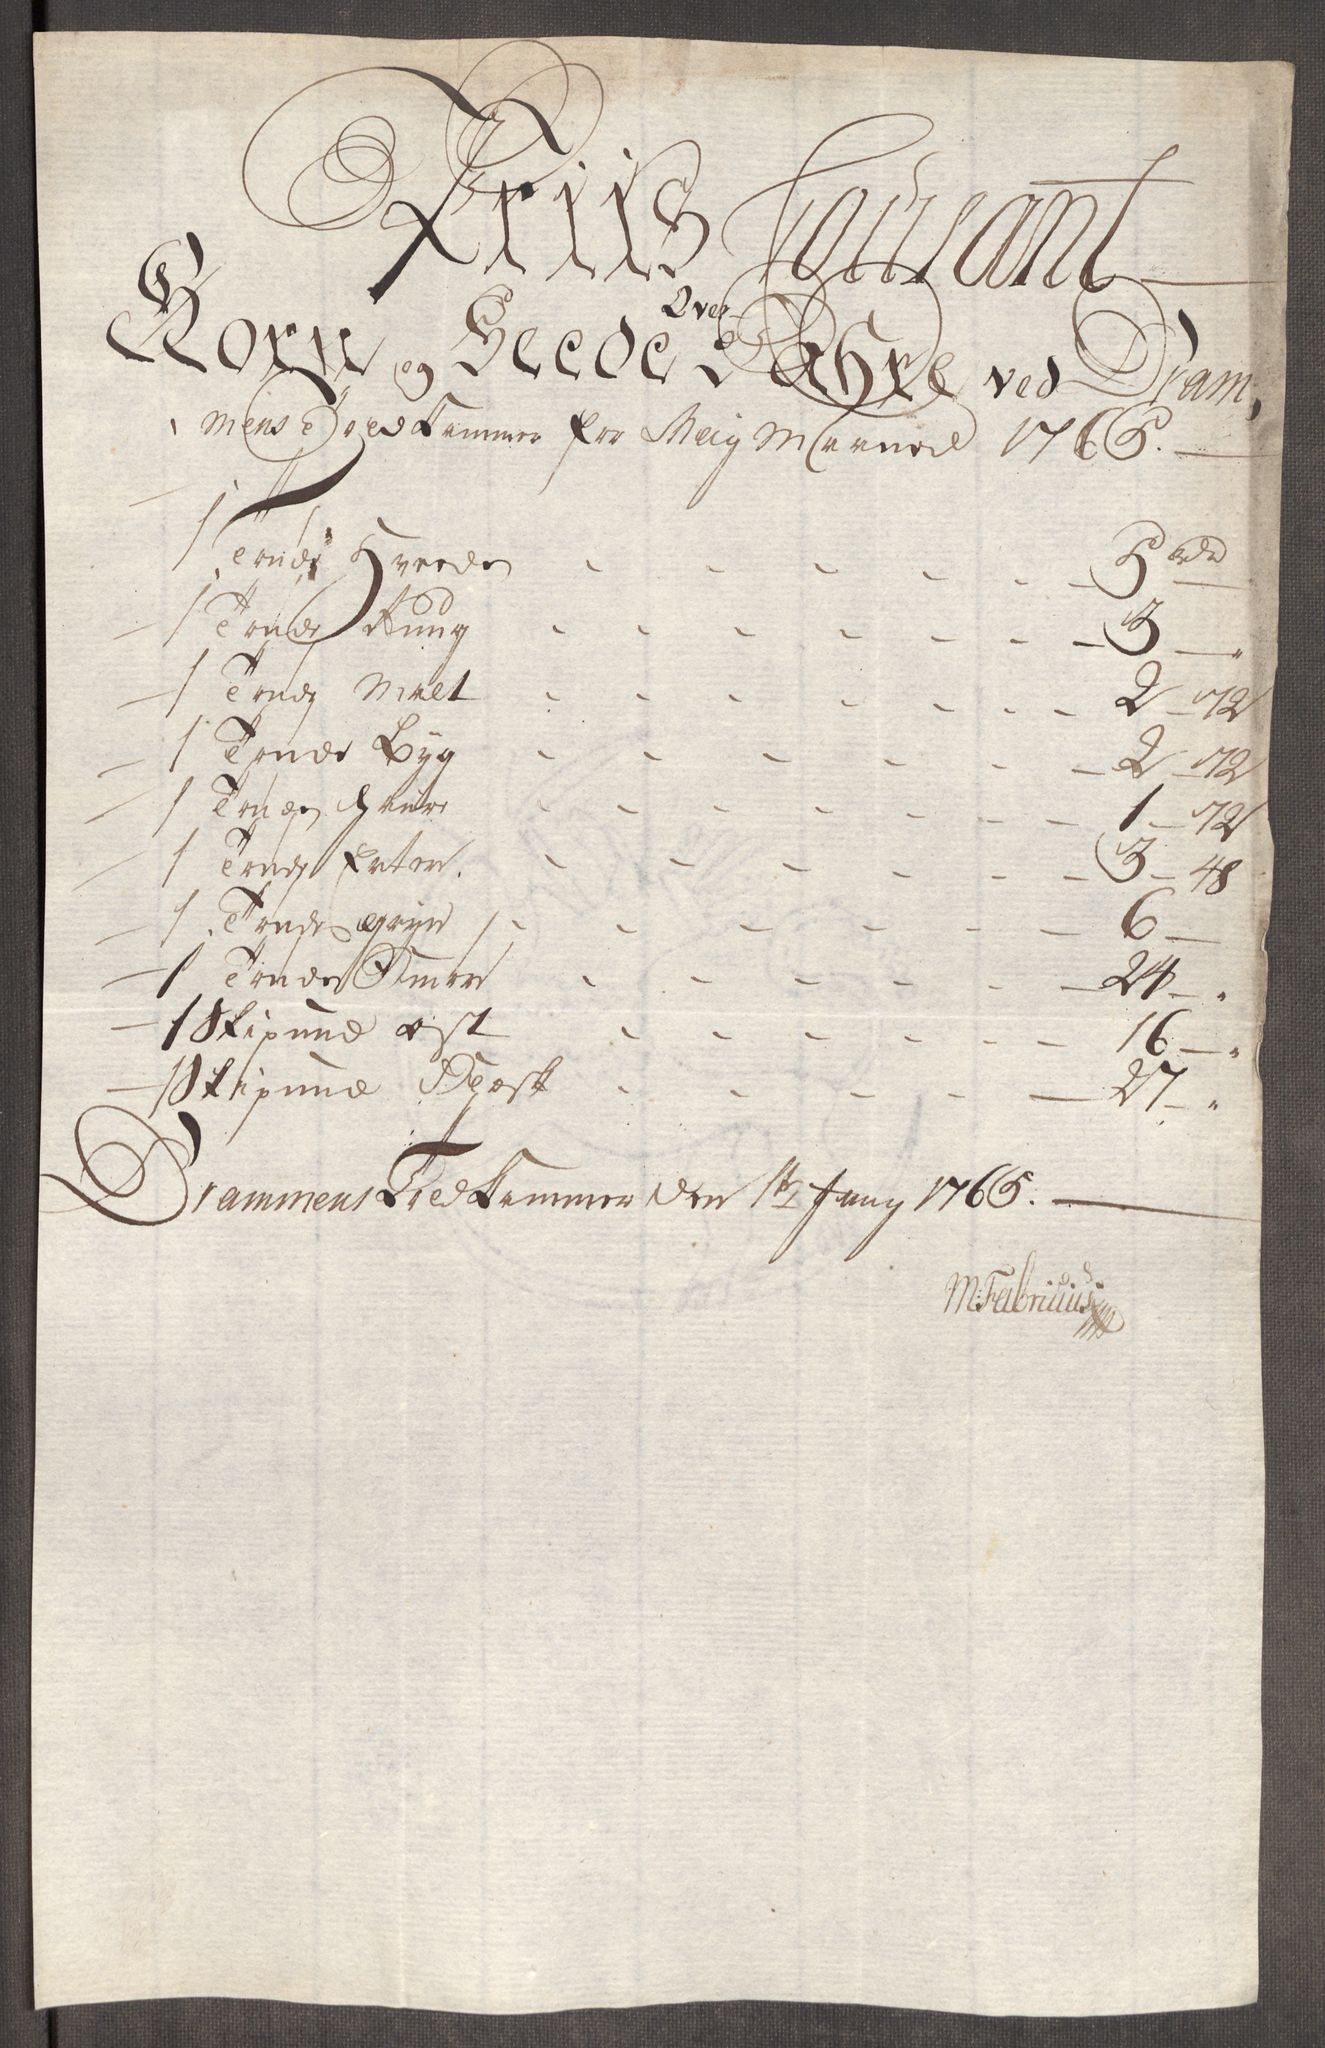 Priis Courant
Over
Korn og Feede Vahre ved Dram,
mens Toldkammer for Maij Maaned 1765.
1 Tønde Hveede 5 rdr
1 Tønde Rung 3 — "
1 Tønde Malt 2 — 72
1 Tønde Byg 2 — 72
1 Tønde Haure 1 — 72
1 Tønde Erter. 3 — 48
1 Tønde gryn 6 —
1 Tønde Smør 24 — "
1 Skipund ost 16 — "
1 Skipund Flesk 27 — "
Drammens Toldkammer den 1ste Juny 1765.
M: Fabricius